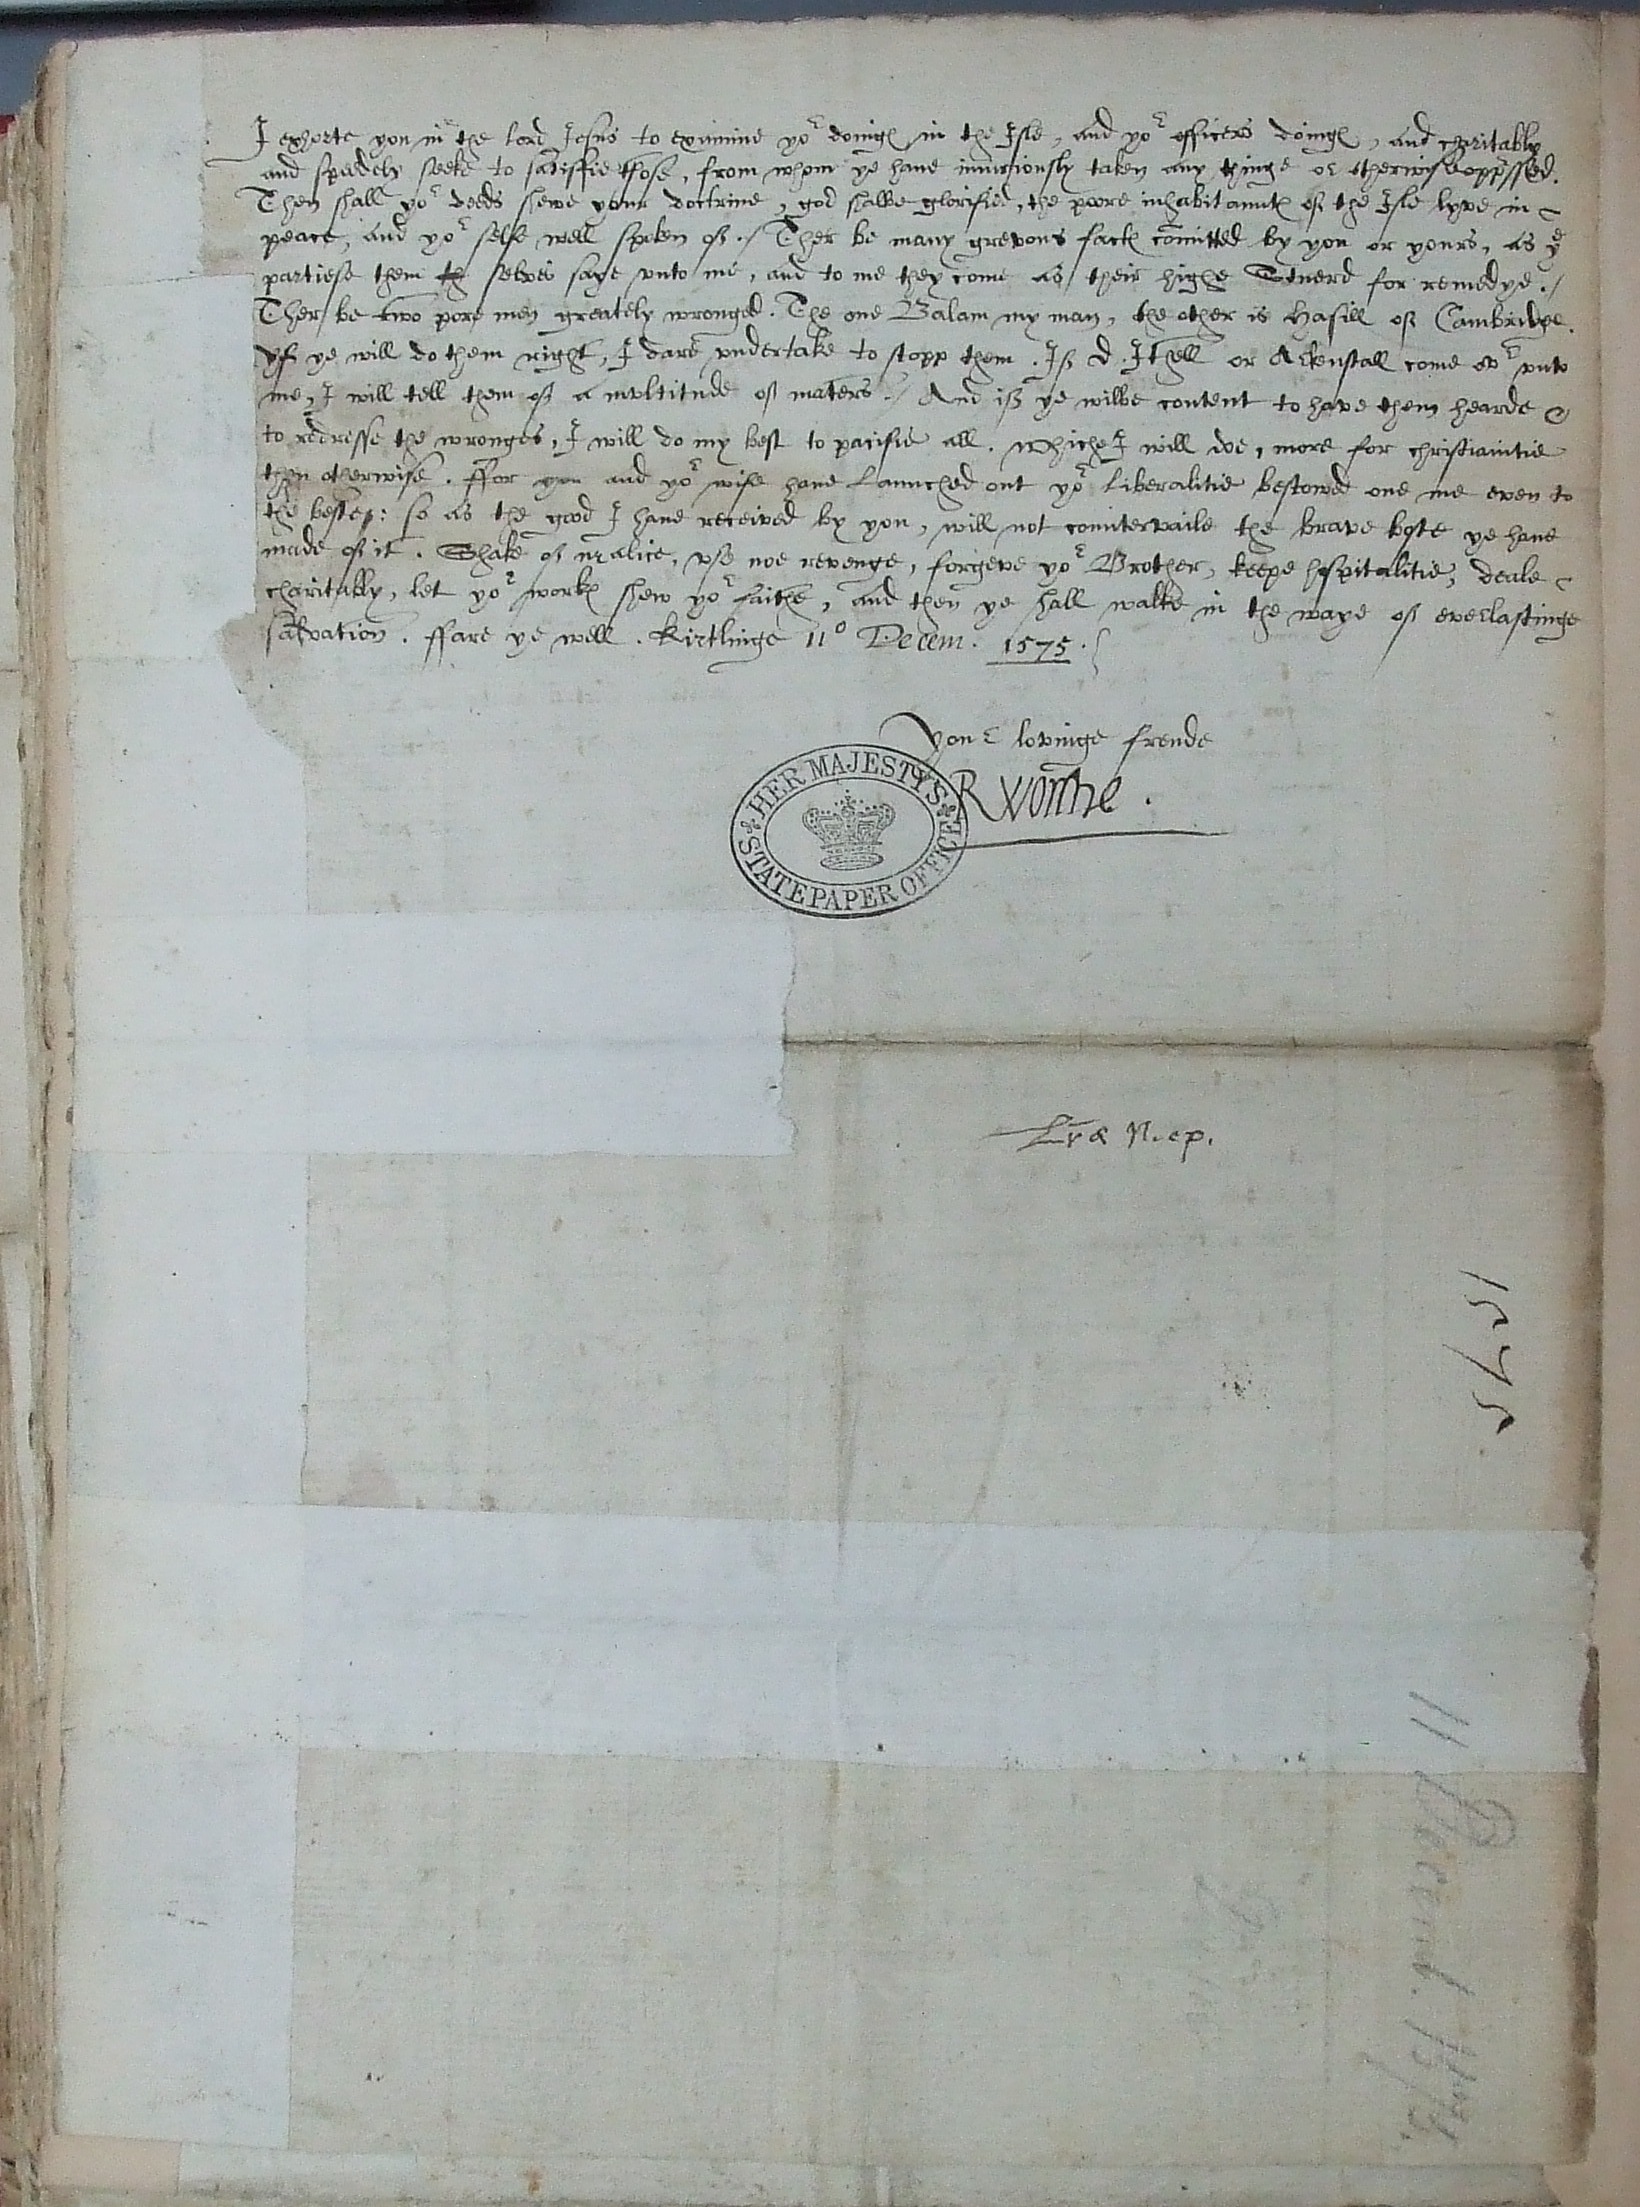 I exhorte you in the lord Jesus to examine yor doinge in the Isle, and yor officers doinge, and charitably
and spedely seeke to satisfie those, from whom ye haue iniuriously taken any thinge or otherwise oppressed.
Then shall yor deeds shewe your doctrine, god shalbe glorified, the poore inhabitaunte of the Isle lyve in
peace, and yor selfe well spoken of ./ Ther be many grevous facte comitted by you or yours, as ye
partiese them th selves saye vnto me, and to me they come as their highe Stuerd for remedye ./
Ther be two pore men greately wronged. The one Balam my man, the other is Hasill of Cambridge.
Yf ye will do them right, I dare vndertake to stopp them. If d. Ithell or Arkenstall come ovr vnto
me, I will tell them of a multitude of maters ./ And if ye wilbe content to have them hearde &
to redresse the wronges, I will do my best to pacifie all. Whiche I will doe, more for christianitie
then otherwise. ffor you and yor wife haue Launched out yor Liberalitie bestowed one me even to
the bestes: so as the good I haue received by you, will not countervaile the brave bote ye haue
made of it. Shake of malice, vse noe revenge, forgeve yor Brother, keepe hospitalitie, deale
charitably, let yor worke shew yor faithe, and then ye shall walke in the waye of everlastinge
salvation. ffare ye well. Kirtlinge 11o Decem. 1575.
Your lovinge frende
R North.
HER MAJESTY'S STATE PAPER OFFICE
Lræ N. ep.
1575
11 Decemb. 1575.